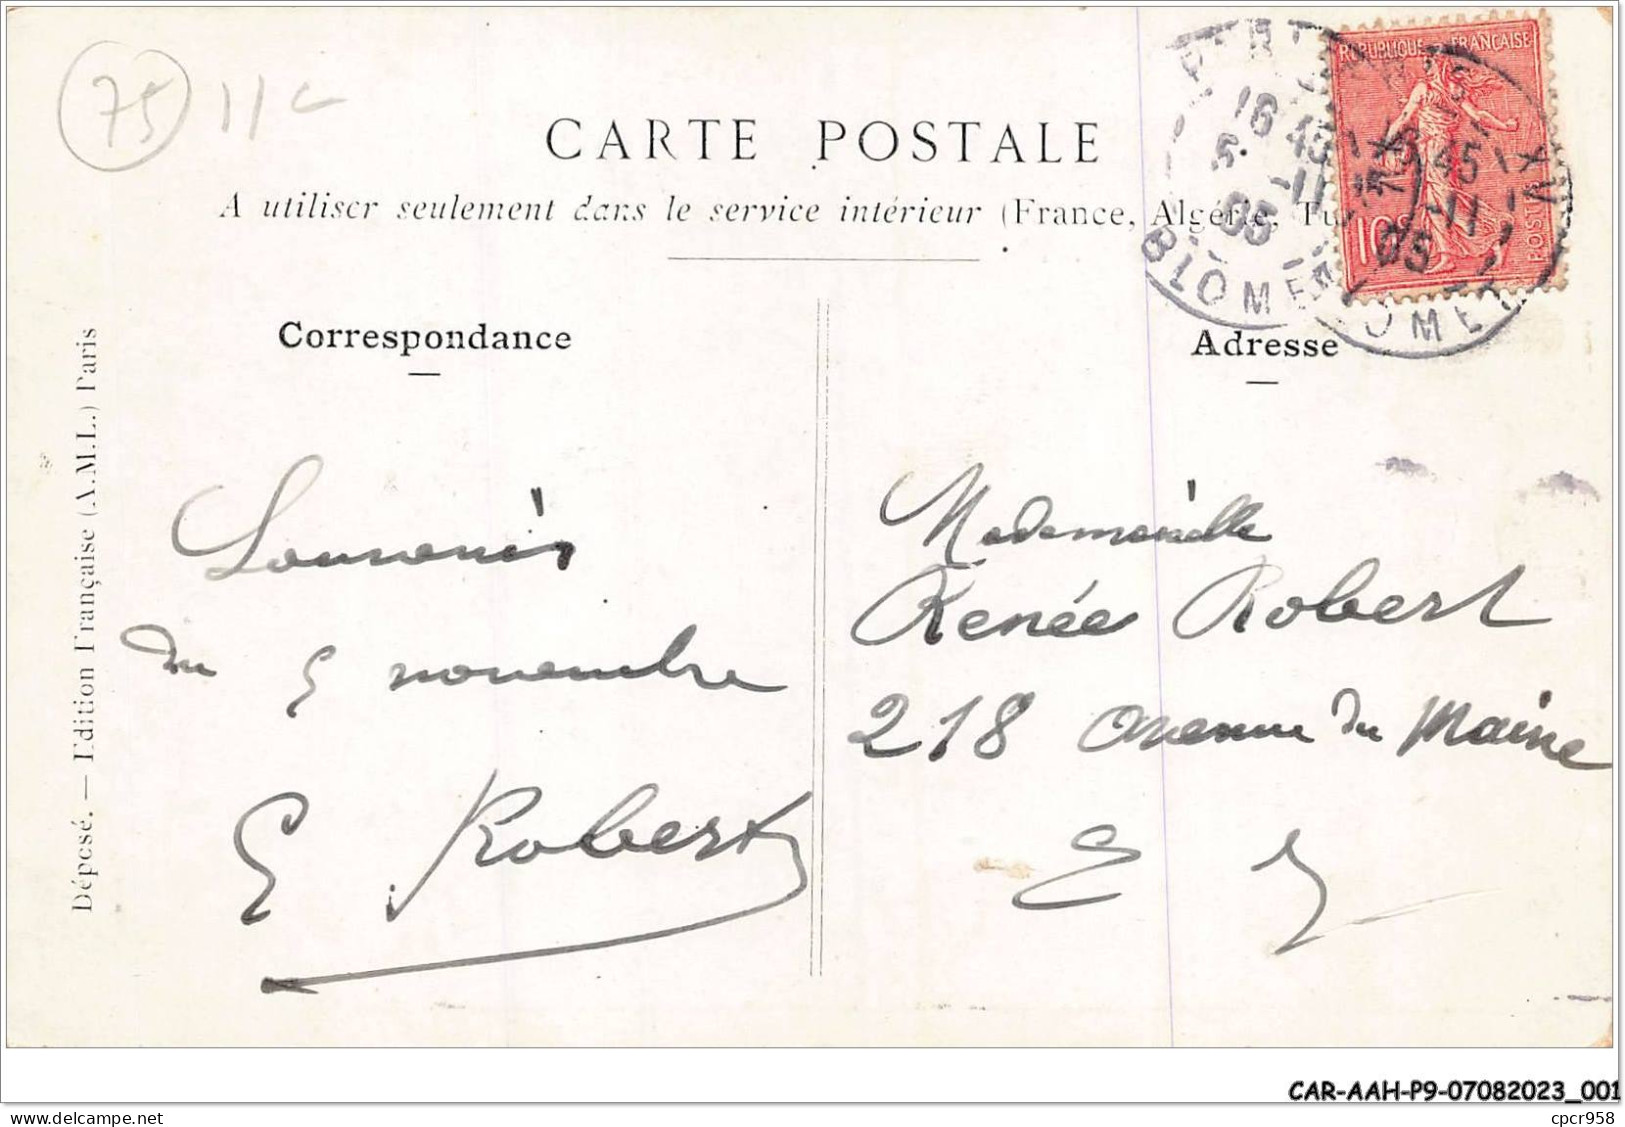 75 11c
CARTE POSTALE
A utiliser seulement dans le service intérieur (France, Algérie, Tu
RÉPUBLIQUE FRANÇAISE
10c
POSTES
PARIS
16 45
5 -11
05
BLOMET
XV
45
-11
05
Correspondance
Adresse
Déposé. — Edition Française (A.M.L.) Paris
Souvenir
du 5 novembre
E Robert
Mademoiselle
Renée Robert
218 avenue du Maine
CAR-AAH-P9-07082023_001
cpcr958